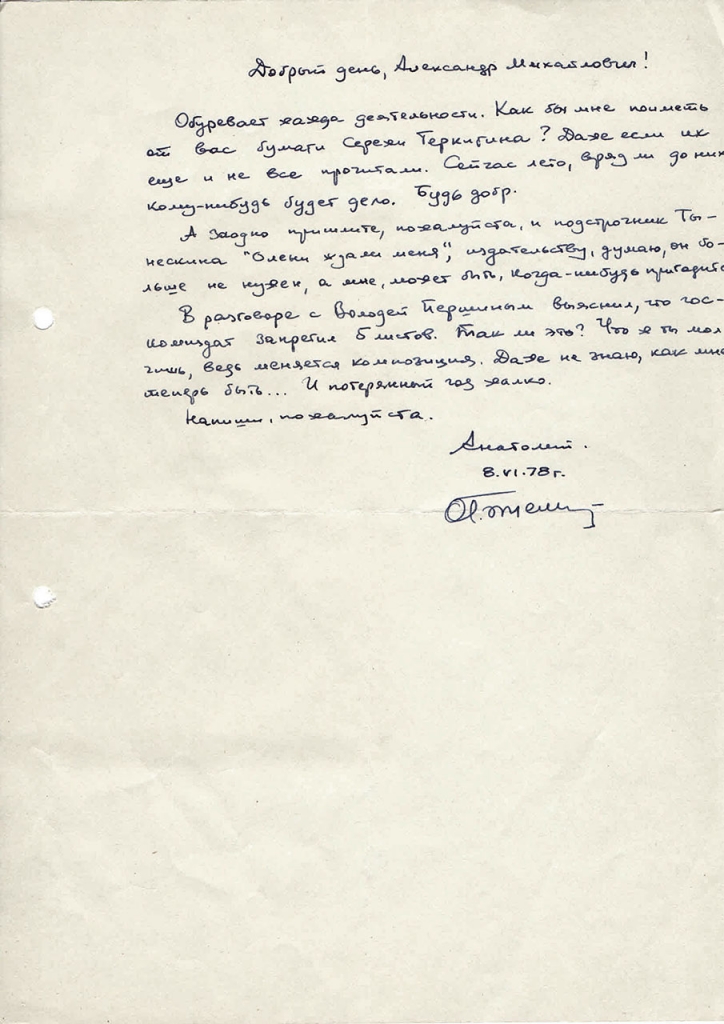 Добрый день, Александр Михайлович!
Обуревает жажда деятельности. Как бы мне поиметь
от вас бумаги Сережи Теркигина? Даже если их
еще и не все прочитали. Сейчас лето, вряд ли до них
кому-нибудь будет дело. Будь добр.
А заодно пришлите, пожалуйста, и подстрочник Ты-
нескина "Олени ждали меня", издательству, думаю, он бо-
льше не нужен, а мне, может быть, когда-нибудь пригодится
В разговоре с Володей Першиным выяснил, что гос-
комиздат запретил 5 листов. Так ли это? Что ж ты мол
чишь, ведь меняется композиция. Даже не знаю, как мне
теперь быть... И потерянный год жалко.
Напиши, пожалуйста.
Анатолий.
8.VI.78 г.